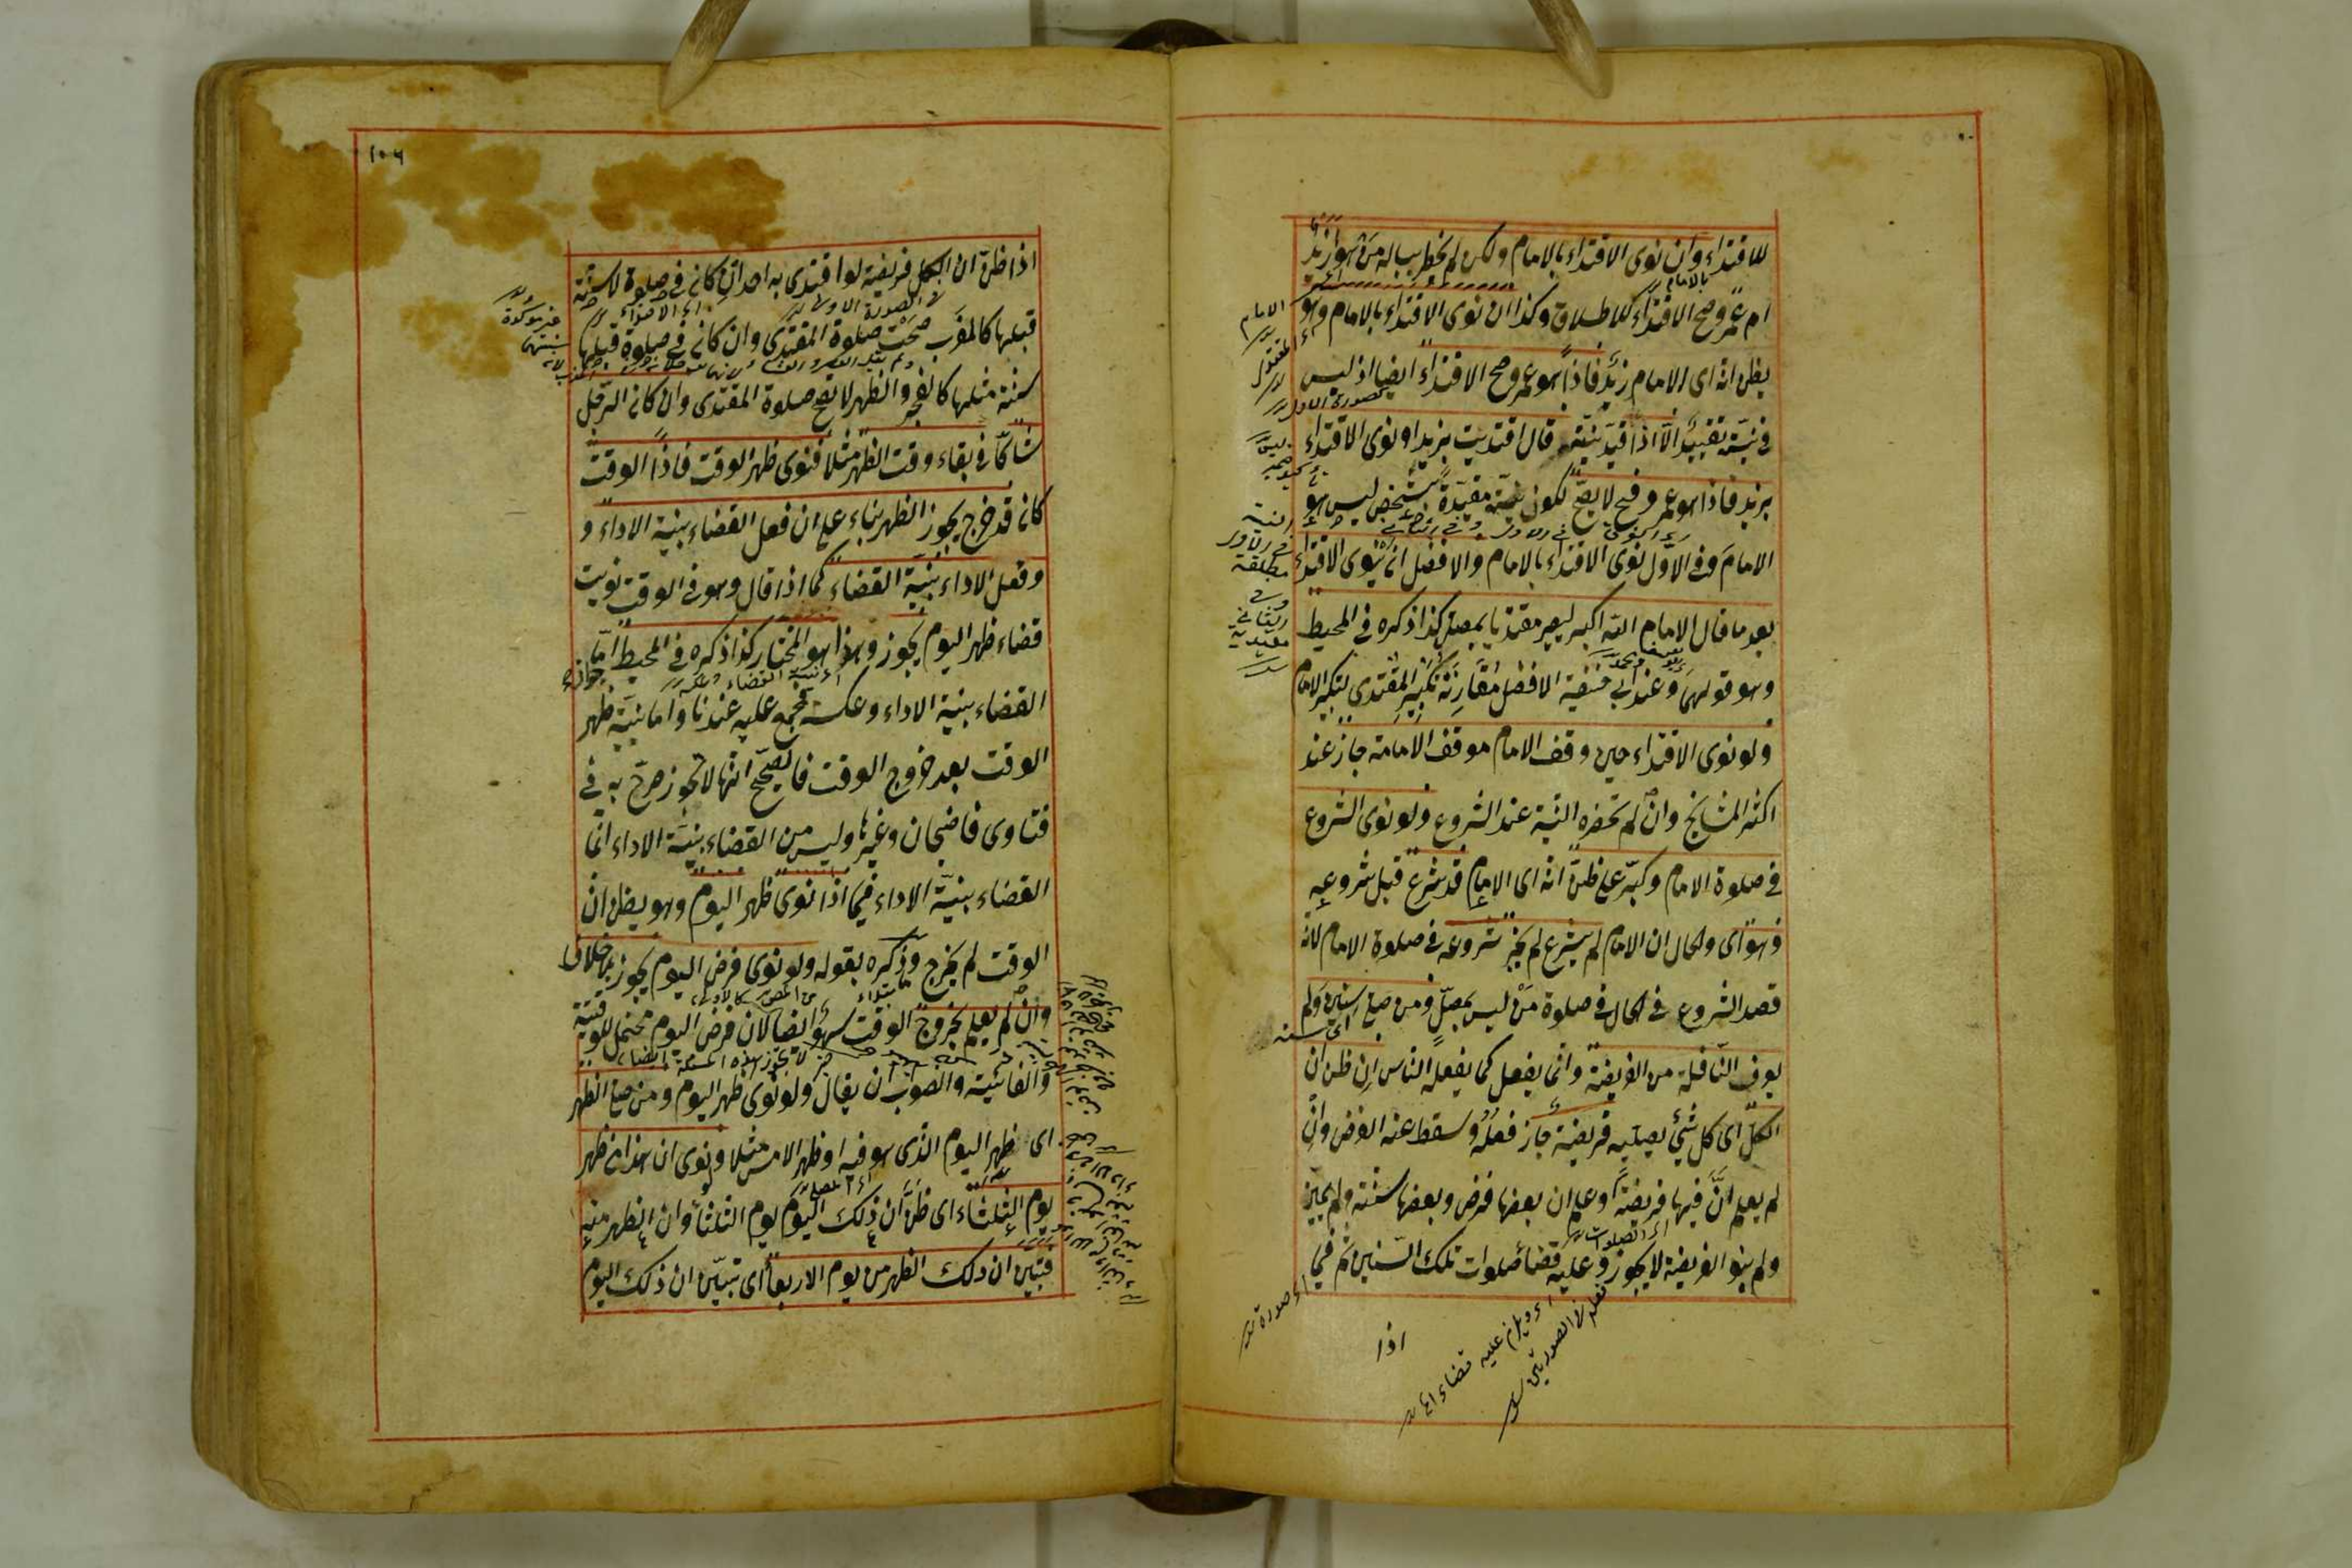 للاقتداء وان نوى الاقتداء بالامام ولكن لم يخطر بباله من هو أزيد
ام عمرو صح الاقتداء للاطلاق وكذا ان نوى الاقتداء بالامام وهو
يظن انه اى الامام زيد فاذا هو عمرو صح الاقتداء ايضا اذ ليس
فى نيته تقييد الّا اذا قيد نيته قال اقتديت بزيد او نوى الاقتداء
بزيد فاذا هو عمرو فح لا يصح لكون نيته مقيدة بشخص ليس هو
الامام وفى الاول نوى الاقتداء بالامام والافضل ان ينوى الاقتداء
بعد ما قال الامام الله اكبر ليصير مقتديا بمصل كذا ذكره فى المحيط
وهو قولهما وعند ابى حنيفة الافضل مقارنة تكبير المقتدى لتكبير الامام
ولو نوى الاقتداء حين وقف الامام موقف الامامة جاز عند
اكثر المشايخ وان لم تحضره النية عند الشروع ولو نوى الشروع
فى صلوة الامام وكبر على ظن انه اى الامام قد شرع قبل شروعه
وهو اى والحال ان الامام لم يشرع لم يجز شروعه فى صلوة الامام لانه
قصد الشروع فى الحال فى صلوة من ليس بمصل ومن صلى سنين ولم
يعرف النافلة من الفريضة وانما يفعل كما يفعله الناس ان ظن ان
الكل اى كل شئ يصليه فريضة جاز فعله وسقط عنه الفرض وان
لم يعلم ان فيها فريضة او علم ان بعضها فرض وبعضها سنة ولم يميز
ولم ينو الفريضة لا يجوز وعليه قضاء صلوات تلك السنين ثم فى
اذا
١٠٦
اذا ظن ان الكل فريضة لو اقتدى به احد ان كان فى صلوة لا سنة
قبلها كالمغرب صحت صلوة المقتدى وان كان فى صلوة قبلها
سنة مثلها كالفجر والظهر لا تصح صلوة المقتدى وان كان الرجل
شاكا فى بقاء وقت الظهر مثلا فنوى ظهر الوقت فاذا الوقت
كان قد خرج يجوز الظهر بناء على ان فعل القضاء بنية الاداء و
وفعل الاداء بنية القضاء كما اذا قال وهو فى الوقت نويت
قضاء ظهر اليوم يجوز وهذا هو المختار كذا ذكره فى المحيط امّا جواز
القضاء بنية الاداء وعكسه فمجمع عليه عندنا واما نية ظهر
الوقت بعد خروج الوقت فالصحيح انها لا تجوز صرح به فى
فتاوى قاضيخان وغيرها وليس من القضاء بنية الاداء انما
القضاء بنية الاداء فيما اذا نوى ظهر اليوم وهو يظن ان
الوقت لم يخرج وذكره بقوله ولو نوى فرض اليوم يجوز بلا خلاف
وان لم يعلم بخروج الوقت سهو ايضا لان فرض اليوم محتمل للوقتية
والفائتة والصواب ان يقال ولو نوى ظهر اليوم ومن صلى الظهر
اى ظهر اليوم الذى هو فيه او ظهر الامس مثلا ونوى ان هذا من ظهر
يوم الثلثاء اى ظن ان ذلك اليوم يوم الثلثاء وان الظهر منه
فتبين ان ذلك الظهر من يوم الاربعاء اى تبين ان ذلك اليوم